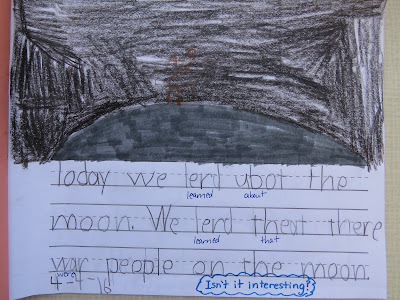 Today we lerd ubot the
learned about
moon. We lerd theat there
learned that
war people on the moon.
were
4-4-16 Isn't it interesting?